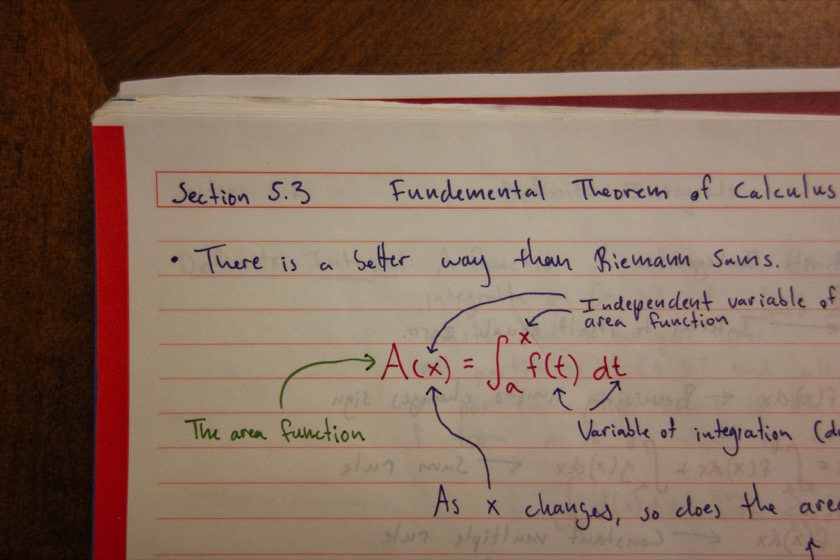 Section 5.3 Fundemental Theorem of Calculus
• There is a better way than Riemann Sums.
Independent variable of
area function
A(x) = ∫ₐˣ f(t) dt
The area function
Variable of integration
As x changes, so does the